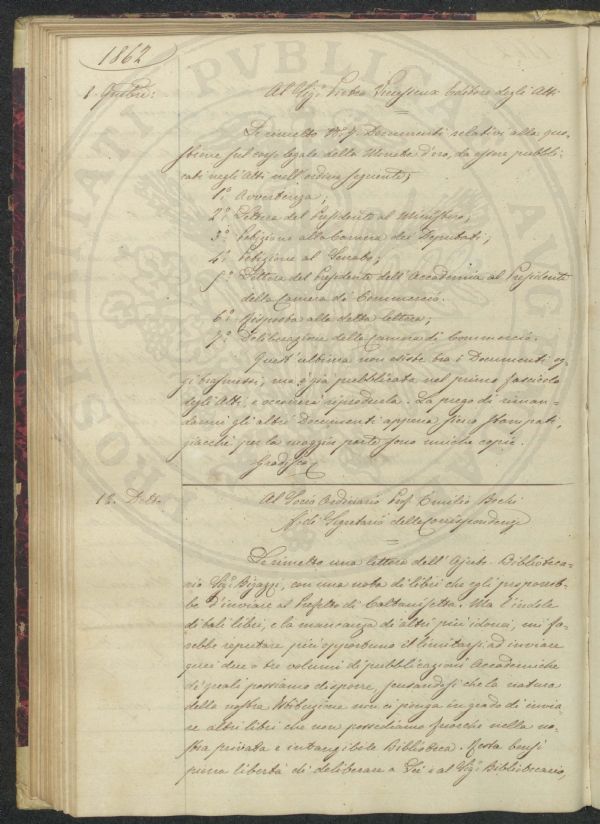 1862
PROSPERITATI PVBLICAE AVG
Al Sig.r Pietro editore degli Atti
Le rimetto N.º 7 Documenti relativi alla que-
stione sul corso legale della Moneta d'oro, da essere pubbli-
cati negli Atti nell'ordine seguente;
1.º Avvertenza;
2.º Lettera del Presidente al Ministero;
3.º Petizione alla Camera dei Deputati;
4.º Petizione al Senato;
5.º Lettera del Presidente dell'Accademia al Presidente
della Camera di Commercio.
6.º Risposta alla detta lettera;
7.º Deliberazione della Camera di Commercio.
Quest'ultima non esiste tra i Documenti og-
gi trasmessi, ma è già pubblicata nel primo fascicolo
degli Atti, e occorrerà riprodurla. La prego di riman-
darmi gli altri Documenti appena siano stampati,
giacchè per la maggior parte sono uniche copie.
Gradisca
12. Detto
Al Socio Ordinario Prof. Emilio Bechi
ff. di Segretario delle Corrispondenze
Le rimetto una lettera dell'Ajuto-Biblioteca-
rio Sig.r Bigazzi, con una nota di libri che egli proporreb-
be d'inviare al Prefetto di Caltanissetta. Ma l'indole
di tali libri, e la mancanza di altri più idonei, mi fa-
rebbe reputare più opportuno il limitarsi ad inviare
quei due o tre volumi di pubblicazioni Accademiche
di quali possiamo disporre, pensandosi che la natura
della nostra Istituzione non ci ponga in grado di invia-
re altri libri che non possediamo fuorchè nella no-
stra privata e intangibile Biblioteca. Resta bensì
piena libertà di deliberare a Lei e al Sig.r Bibliotecario,